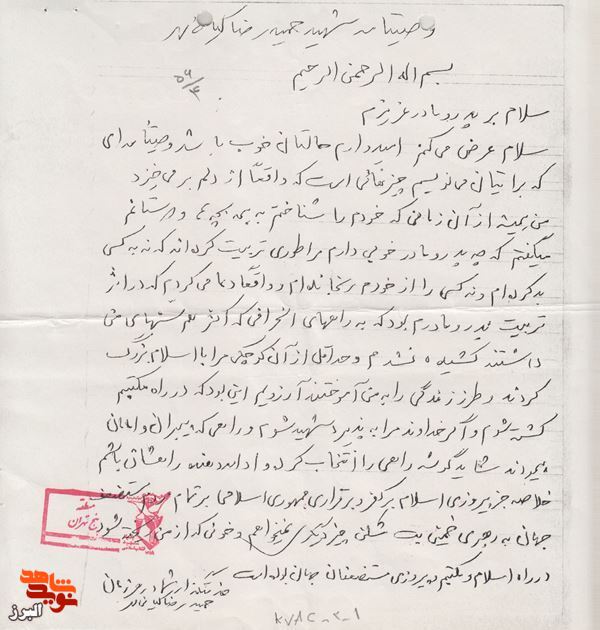 وصیتنامه شهید حمیدرضا کیانی مهر
بسم اله الرحمن الرحیم
۵۹/۴
سلام بر پدر و مادر عزیزم
سلام عرض می‌کنم امیدوارم حالتان خوب باشد وصیتنامه‌ای
که برایتان می‌نویسم چیزهائی است که واقعاً از دلم برمی‌خیزد
من همیشه از آن زمانی که خودم را شناختم به همه بچه‌ها و دوستانم
میگفتم که چه پدر و مادر خوبی دارم مرا طوری تربیت کرده‌اند که نه به کسی
بد کرده‌ام و نه کسی را از خودم رنجانده‌ام و واقعاً دعا می‌کردم که در اثر
تربیت پدر و مادرم بود که به راههای انحرافی که اکثر هم‌سنهای من
داشتند کشیده نشدم و حداقل از آن کوچکی مرا با اسلام بزرگ
کردند و طرز زندگی را به من آموختند آرزویم این بود که در راه مکتبم
کشته شوم و اگر خداوند مرا بپذیرد شهید شوم و راهی که پیامبران و امامان
شاید گوشه راهی را انتخاب کرده و ادامه دهنده راهشان باشم
خلاصه جز پیروزی اسلام بر کفر و برقراری جمهوری اسلامی بر تمام مستضعف
جهان به رهبری خمینی بت شکن چیز دیگری نمیخواهم و خونی که از من ریخته شود
در راه اسلام و مکتبم و پیروزی مستضعفان جهان بوده است
خدمتگذار شما در هر زمان
حمیدرضا کیانی مهر
منطقه
پنج تهران
شاهد
نوید
البرز